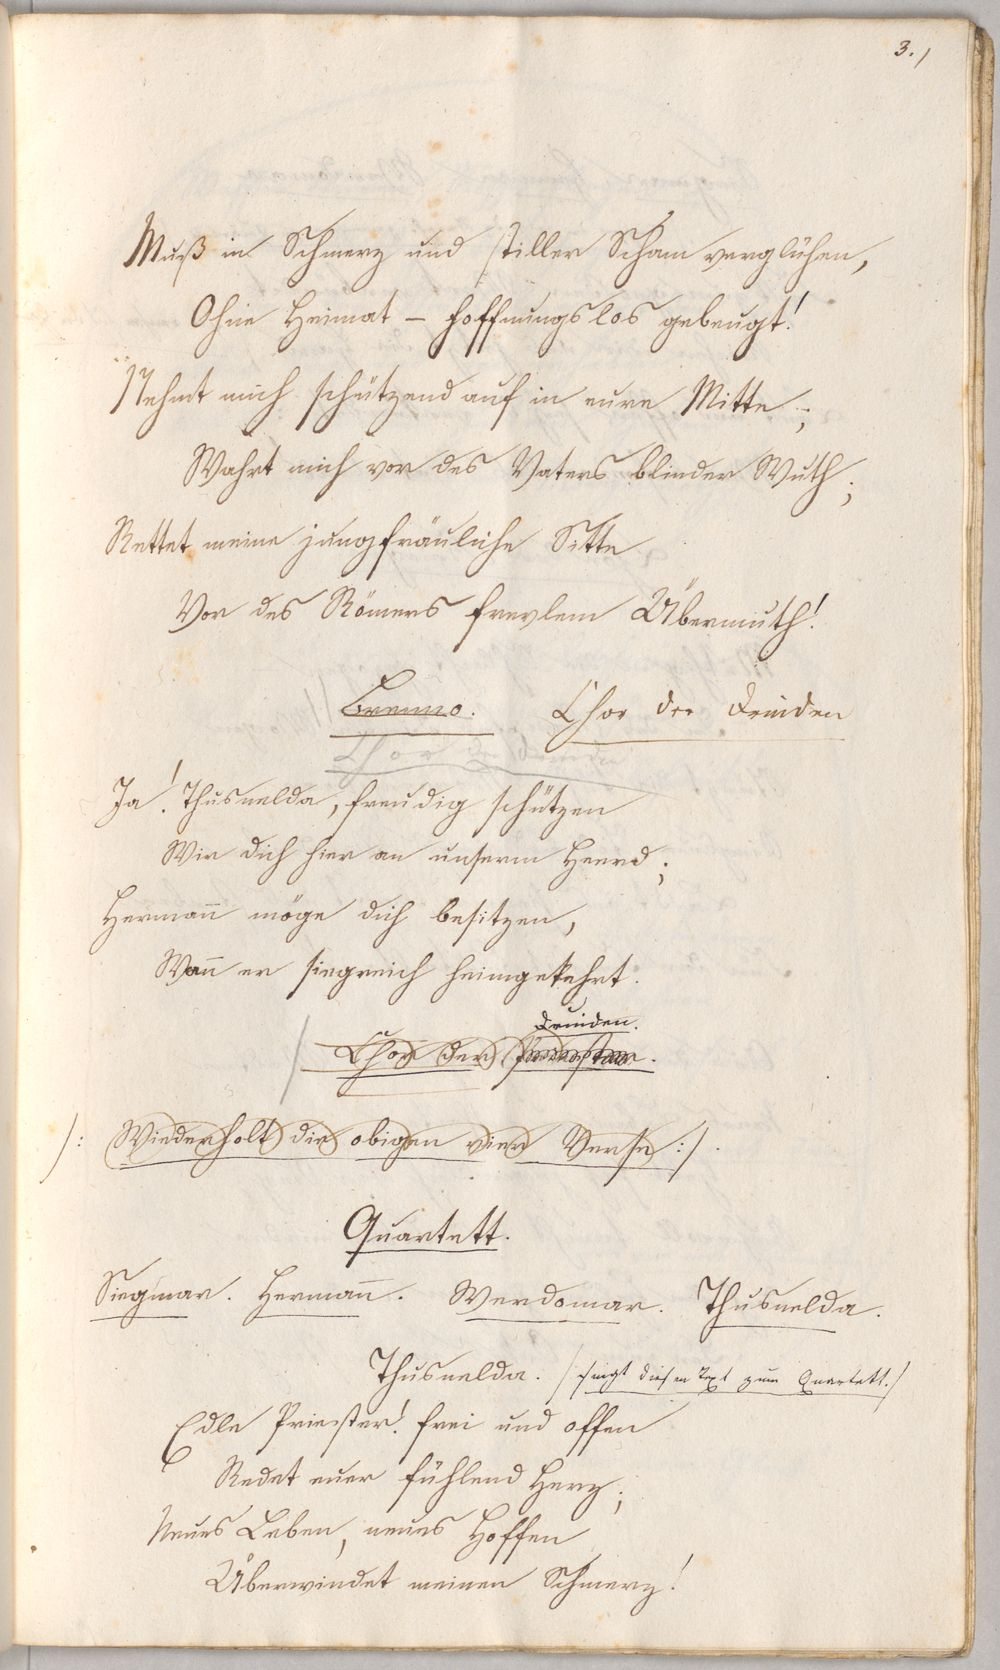 3.)
Muß in Schmerz und stiller Scham verglühen,
Ohne Heimat – hoffnungslos gebeugt!
Nehmt mich schützend auf in eure Mitte;
Wahrt mich vor des Vaters blinder Wuth;
Rettet meine jungfräuliche Sitte
Vor des Römers frevlem Übermuth!
Brenno. Chor der Druiden
Chor der Druiden
Ja! Thusnelda, freudig schützen
Wir dich hier an unserm Heerd;
Hermañ möge dich besitzen,
Wañ er siegreich heimgekehrt.
Druiden.
Chor der Priester.
/: Wiederholt die obigen vier Verse :/.
Quartett.
Siegmar. Hermañ. Werdomar. Thusnelda.
Thusnelda. /singt diesen Text zum Quartett./
Edle Priester! frei und offen
Redet euer fühlend Herz;
Neues Leben, neues Hoffen
Überwindet meinen Schmerz!